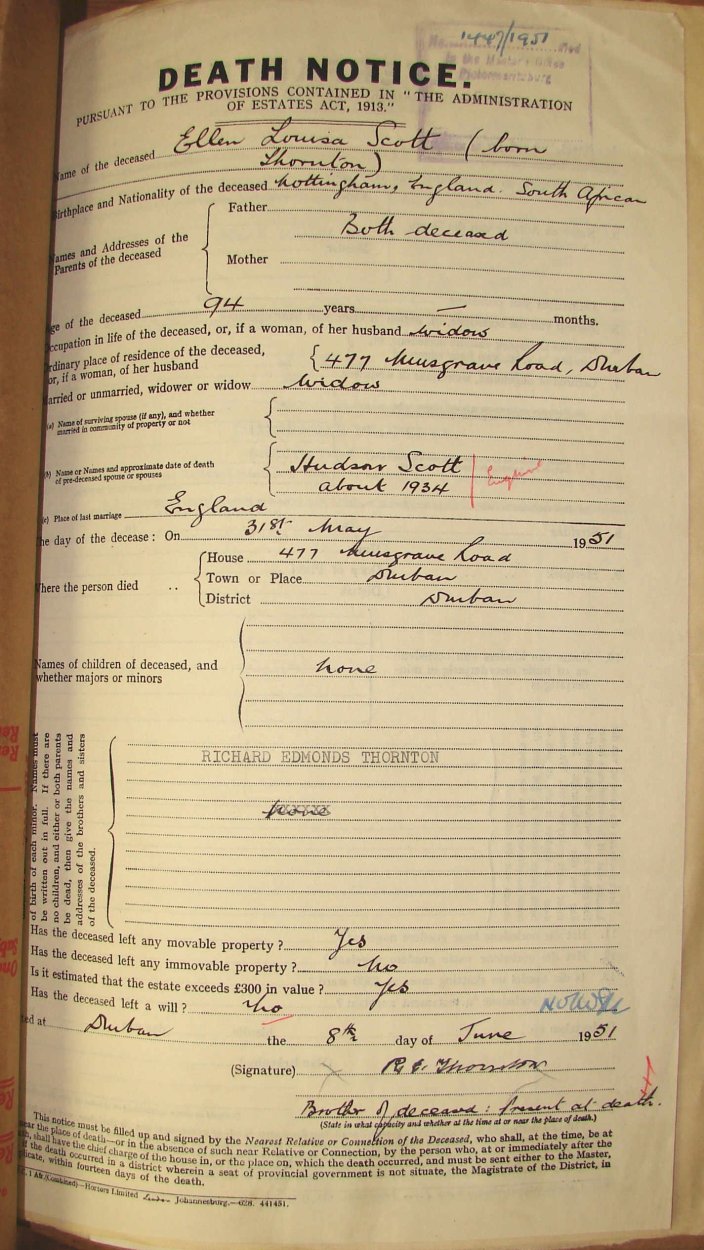 1447/1951
DEATH NOTICE.
PURSUANT TO THE PROVISIONS CONTAINED IN "THE ADMINISTRATION
OF ESTATES ACT, 1913."
Name of the deceased Ellen Louisa Scott (born
Thornton)
Birthplace and Nationality of the deceased Nottingham, England. South African
Names and Addresses of the
Parents of the deceased
Father
Both deceased
Mother
ge of the deceased 94 years — months.
ccupation in life of the deceased, or, if a woman, of her husband widow
rdinary place of residence of the deceased,
or, if a woman, of her husband
{ 477 Musgrave Road, Durban
arried or unmarried, widower or widow Widow
(a) Name of surviving spouse (if any), and whether
married in community of property or not
(b) Name or Names and approximate date of death
of pre-deceased spouse or spouses
Hudson Scott
about 1934
(c) Place of last marriage England
he day of the decease: On 31st May 1951
here the person died ..
House 477 Musgrave Road
Town or Place Durban
District Durban
Names of children of deceased, and
whether majors or minors
None
of birth of each minor. Names must
be written out in full. If there are
no children, and either or both parents
be dead, then give the names and
addresses of the brothers and sisters
of the deceased.
RICHARD EDMONDS THORNTON
None
Has the deceased left any movable property? Yes
Has the deceased left any immovable property? No
Is it estimated that the estate exceeds £300 in value? Yes
Has the deceased left a will? No
ed at Durban the 8th day of June 1951
(Signature) R. E. Thornton
Brother of deceased: Present at death.
(State in what capacity and whether at the time at or near the place of death.)
This notice must be filled up and signed by the Nearest Relative or Connection of the Deceased, who shall, at the time, be at
near the place of death—or in the absence of such near Relative or Connection, by the person who, at or immediately after the
th, shall have the chief charge of the house in, or the place on, which the death occurred, and must be sent either to the Master,
if the death occurred in a district wherein a seat of provincial government is not situate, the Magistrate of the District, in
plicate, within fourteen days of the death.
1 Afr. (Combined)—Hortors Limited Johannesburg.—628. 441451.